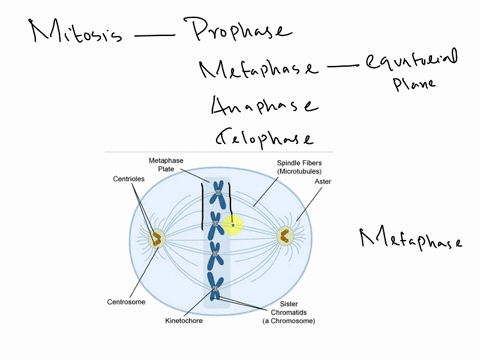 Mitosis — Prophase
Metaphase — equatorial
plane
Anaphase
Telophase
Metaphase
Plate
Spindle Fibers
(Microtubules)
Centrioles
Aster
Metaphase
Centrosome
Sister
Chromatids
(a Chromosome)
Kinetochore